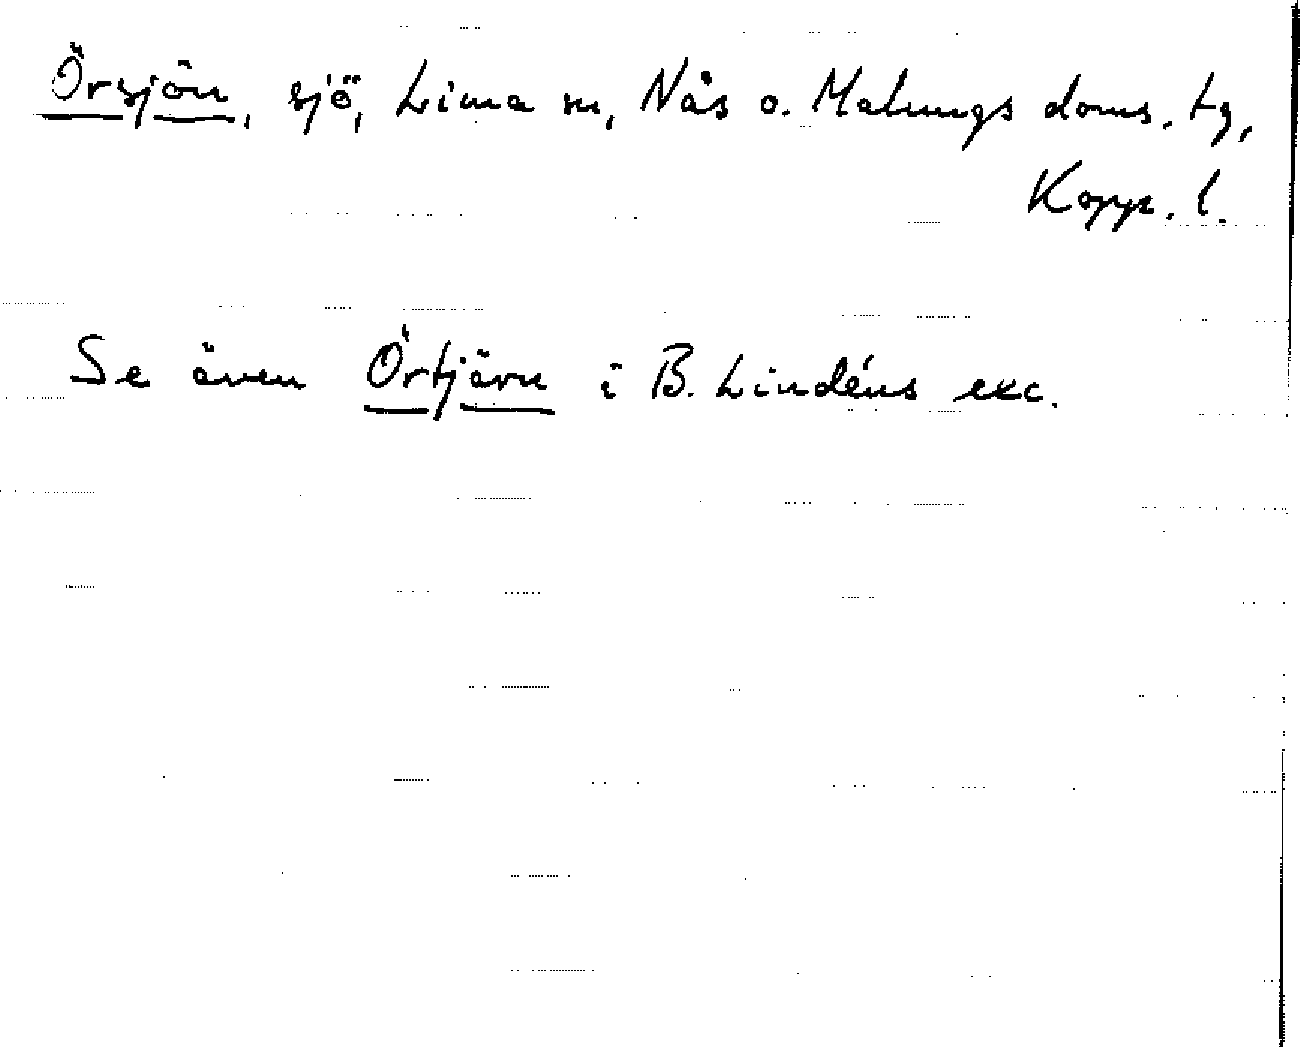 Örsjön, sjö, Lima sn, Nås o. Malungs doms. tg,
Kopp. l.
Se även Örtjärn i B. Lindéns exc.